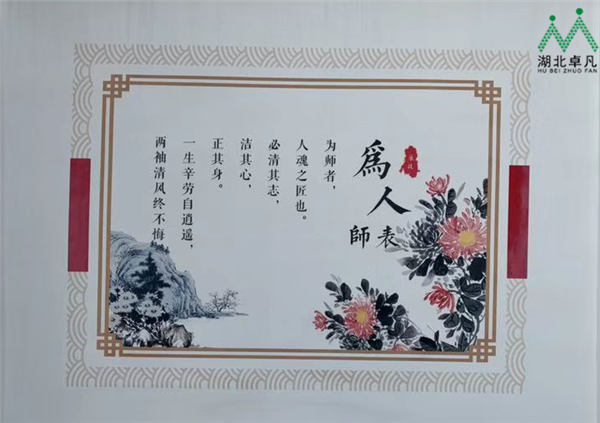 湖北卓凡
HU BEI ZHUO FAN
爲人
師表
为师者，
人魂之匠也。
必清其志，
洁其心，
正其身。
一生辛劳自逍遥，
两袖清风终不悔